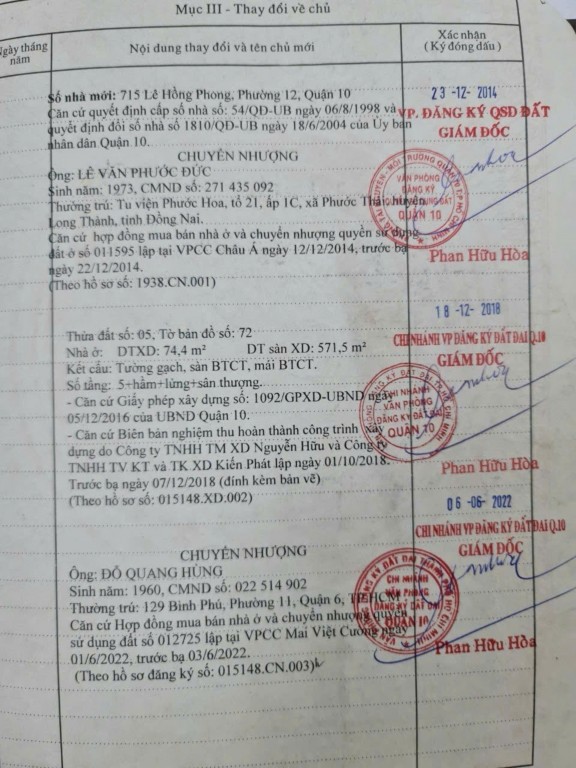 Mục III - Thay đổi về chủ
Ngày tháng năm
Nội dung thay đổi và tên chủ mới
Xác nhận
(Ký đóng dấu)
Số nhà mới: 715 Lê Hồng Phong, Phường 12, Quận 10
Căn cứ quyết định cấp số nhà số: 54/QĐ-UB ngày 06/8/1998 và
quyết định đổi số nhà số 1810/QĐ-UB ngày 18/6/2004 của Ủy ban
nhân dân Quận 10.
CHUYỂN NHƯỢNG
Ông: LÊ VĂN PHƯỚC ĐỨC
Sinh năm: 1973, CMND số: 271 435 092
Thường trú: Tu viện Phước Hoa, tổ 21, ấp 1C, xã Phước Thái, huyện
Long Thành, tỉnh Đồng Nai.
Căn cứ hợp đồng mua bán nhà ở và chuyển nhượng quyền sử dụng
đất ở số 011595 lập tại VPCC Châu Á ngày 12/12/2014, trước bạ
ngày 22/12/2014.
(Theo hồ sơ số: 1938.CN.001)
23-12-2014
VP. ĐĂNG KÝ QSD ĐẤT
GIÁM ĐỐC
VĂN PHÒNG
ĐĂNG KÝ
QUẬN 10
Phan Hữu Hòa
Thửa đất số: 05, Tờ bản đồ số: 72
Nhà ở: DTXD: 74,4 m² DT sàn XD: 571,5 m²
Kết cấu: Tường gạch, sàn BTCT, mái BTCT.
Số tầng: 5+hầm+lửng+sân thượng.
- Căn cứ Giấy phép xây dựng số: 1092/GPXD-UBND ngày
05/12/2016 của UBND Quận 10.
- Căn cứ Biên bản nghiệm thu hoàn thành công trình xây
dựng do Công ty TNHH TM XD Nguyễn Hữu và Công ty
TNHH TV KT và TK XD Kiến Phát lập ngày 01/10/2018.
Trước bạ ngày 07/12/2018 (đính kèm bản vẽ)
(Theo hồ sơ số: 015148.XD.002)
18-12-2018
CHI NHÁNH VP ĐĂNG KÝ ĐẤT ĐAI Q.10
GIÁM ĐỐC
CHI NHÁNH
VĂN PHÒNG
ĐĂNG KÝ ĐẤT ĐAI
QUẬN 10
Phan Hữu Hòa
CHUYỂN NHƯỢNG
Ông: ĐỖ QUANG HÙNG
Sinh năm: 1960, CMND số: 022 514 902
Thường trú: 129 Bình Phú, Phường 11, Quận 6, TP.HCM
Căn cứ Hợp đồng mua bán nhà ở và chuyển nhượng quyền
sử dụng đất số 012725 lập tại VPCC Mai Việt Cường ngày
01/6/2022, trước bạ 03/6/2022.
(Theo hồ sơ đăng ký số: 015148.CN.003)
06-06-2022
CHI NHÁNH VP ĐĂNG KÝ ĐẤT ĐAI Q.10
GIÁM ĐỐC
CHI NHÁNH
VĂN PHÒNG
ĐĂNG KÝ ĐẤT ĐAI
QUẬN 10
Phan Hữu Hòa